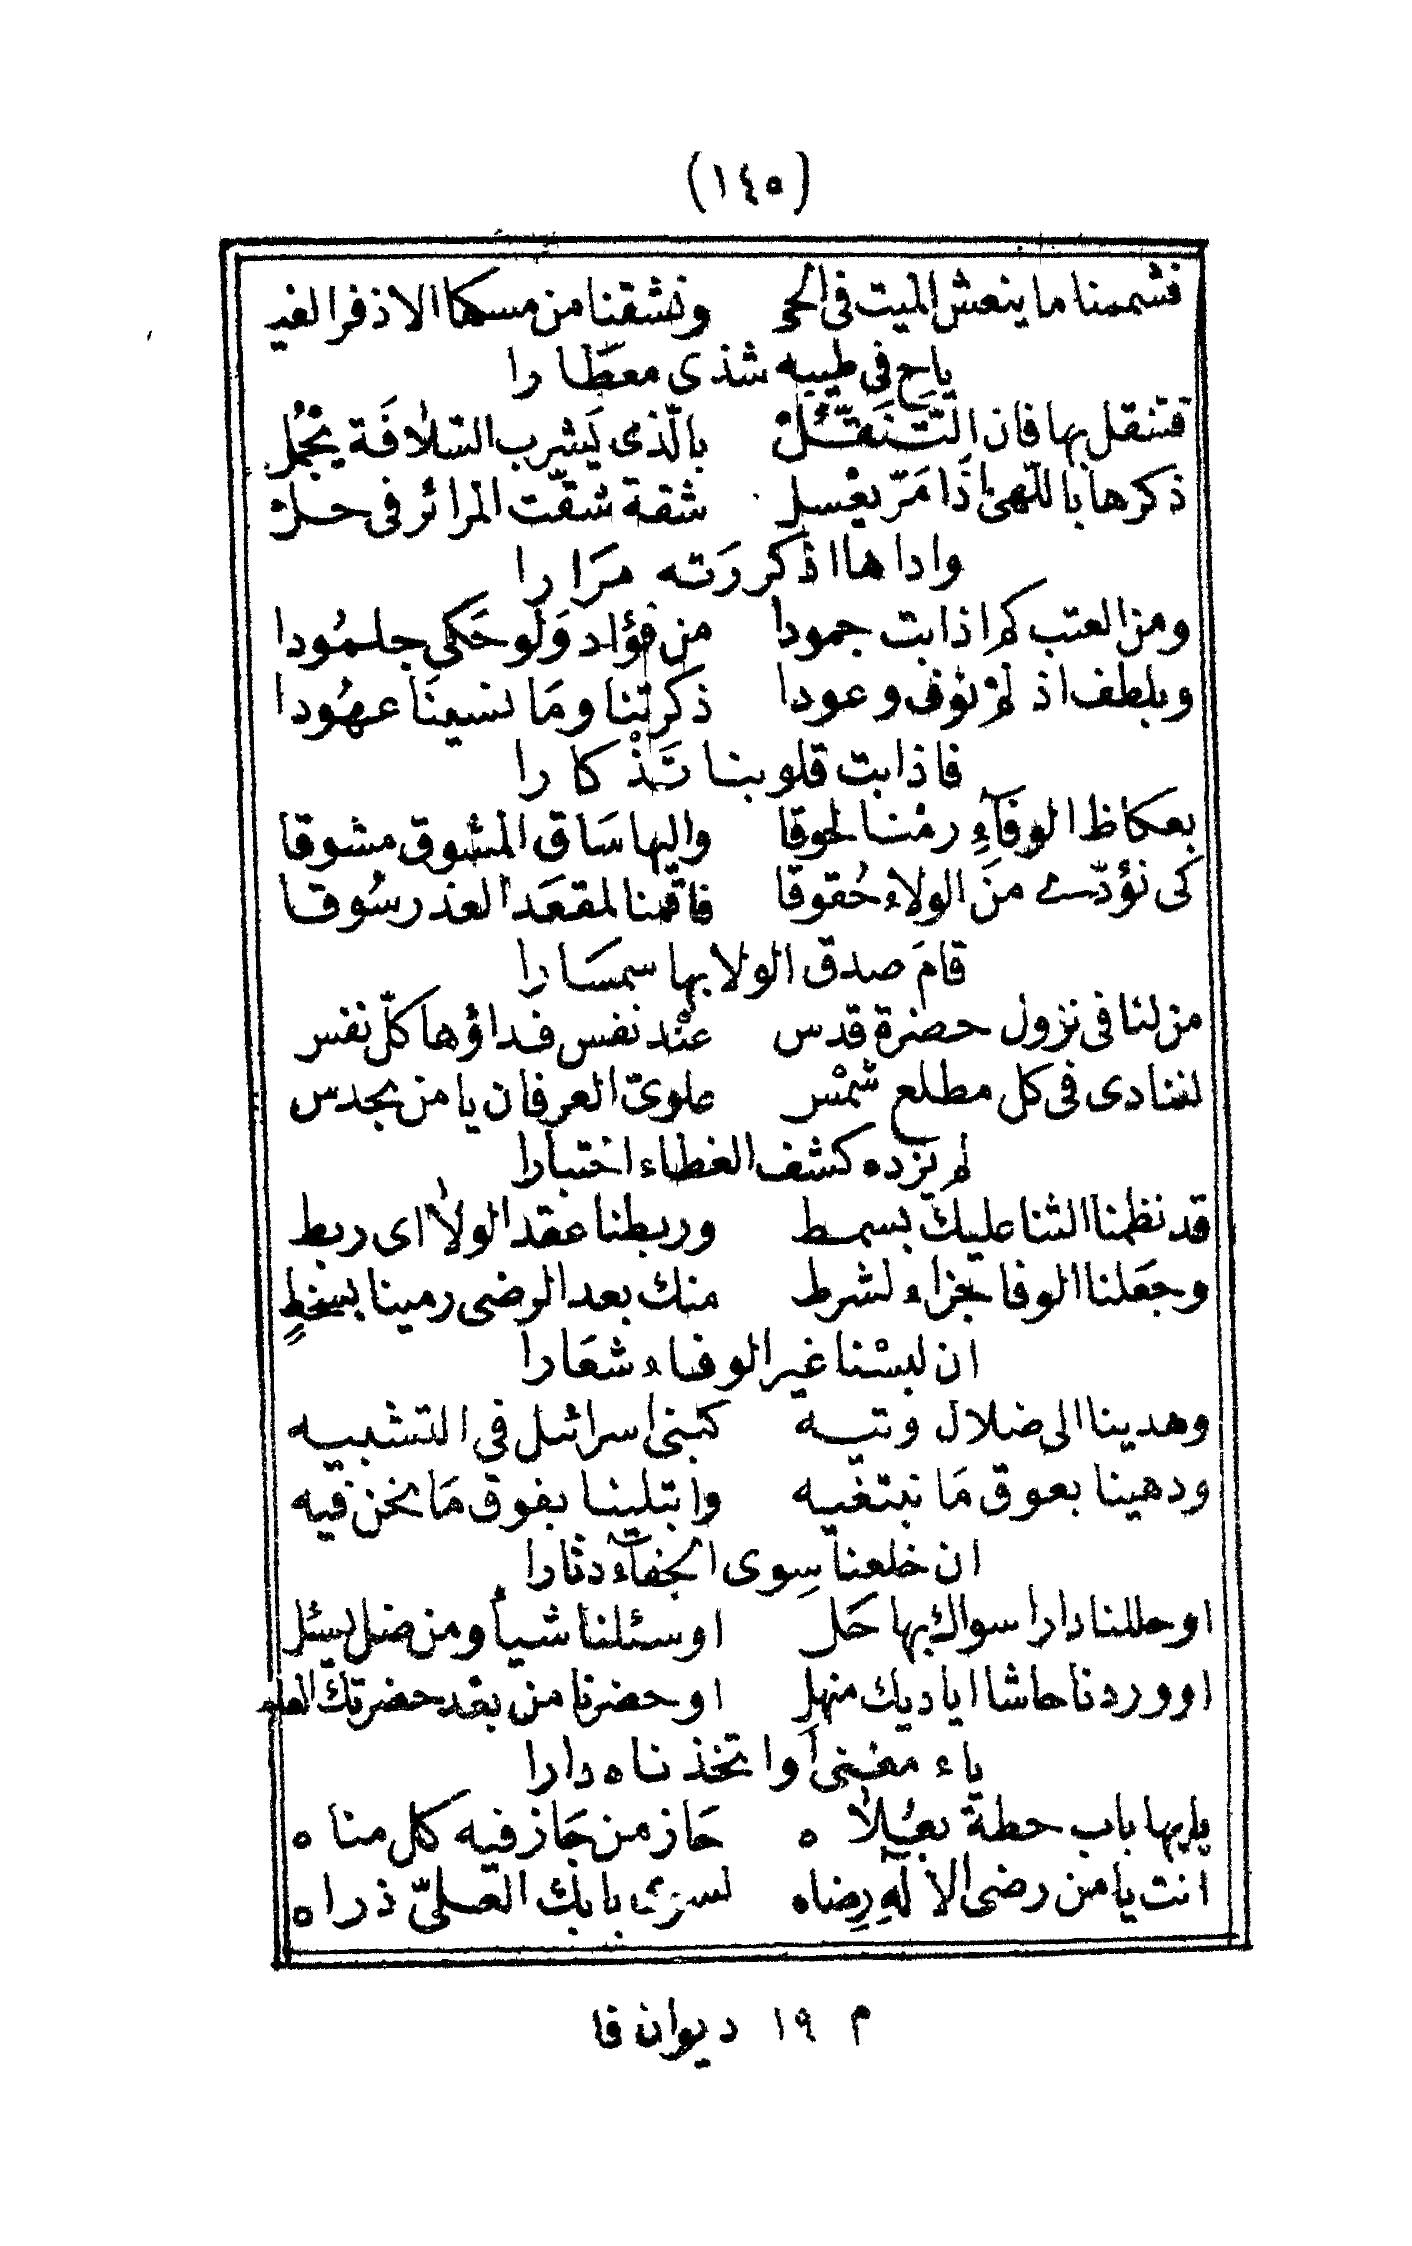 (١٤٥)
فشممنا ما ينعش الميت فى الحى ونشقنا من مسكها الاذفر الفيـ
ياح فى طيبه شذى معطارا
فتنقل بها فان التَّنَقّـلْ بالّذى يَشرب السّلٰافَة يجْمُل
ذكرها باللّهىٰ اذَا مَرّ يعْسل شقة شقّت المرائر فى حـل
واداها اذكررَته مرَارا
ومن العتب كم اذابت جمودا من فؤاد وَلَو حَكى جلـمُودا
وبلطف اذ لمْ نوف وعودا ذكرتنا ومَا نسينَا عهُودا
فاذابت قلوبنا تَذْكارا
بعكاظ الوفَآءِ رمْنـا لحوقا واليها سَاق المشوق مشوقا
كى نؤدّے منَ الولاء حُقوقا فاقمنا لمقعَد العذر سُوقـا
قامَ صدق الولا بها سمسَارا
من لنا فى نزول حضرة قدس عنْد نفس فـداؤها كلّ نفس
لننادى فى كل مطلع شمْس علوىّ العرفان يا من بحدس
لم نزده كشف الغطاء اختبارا
قد نظمنا الثنا عليك بسمـط وربطنا عقد الولٰا اى ربط
وجعَلنا الوفا جزاء لشرط منك بعد الرضى رمينا بسخطٍ
ان لبسْنا غير الوفاء شعَارا
وهدينا الى ضلال وتيـه كبنى اسرائيل فى التشبيـه
ودهينا بعوق مَا نبتغيـه وابتلينـا بفوق مَا نحن فيه
ان خلعنا سِوى الجفآء دثارا
اوحللنا دارا سواك بها حَل اوسئلنا شيأ ومن ضل يسئل
اووردنا حاشا اياديك منهل اوحضرنا من بعْد حضرتك العلـ
ياء مغنى اواتخذناه دارا
يا بها باب حطة بعُـلٰاه حَاز من جَاز فيه كل مناه
انت يا من رضى الالٰهِ رِضاه بابك العـلىّ ذراه
م ١٩ ديوان فا